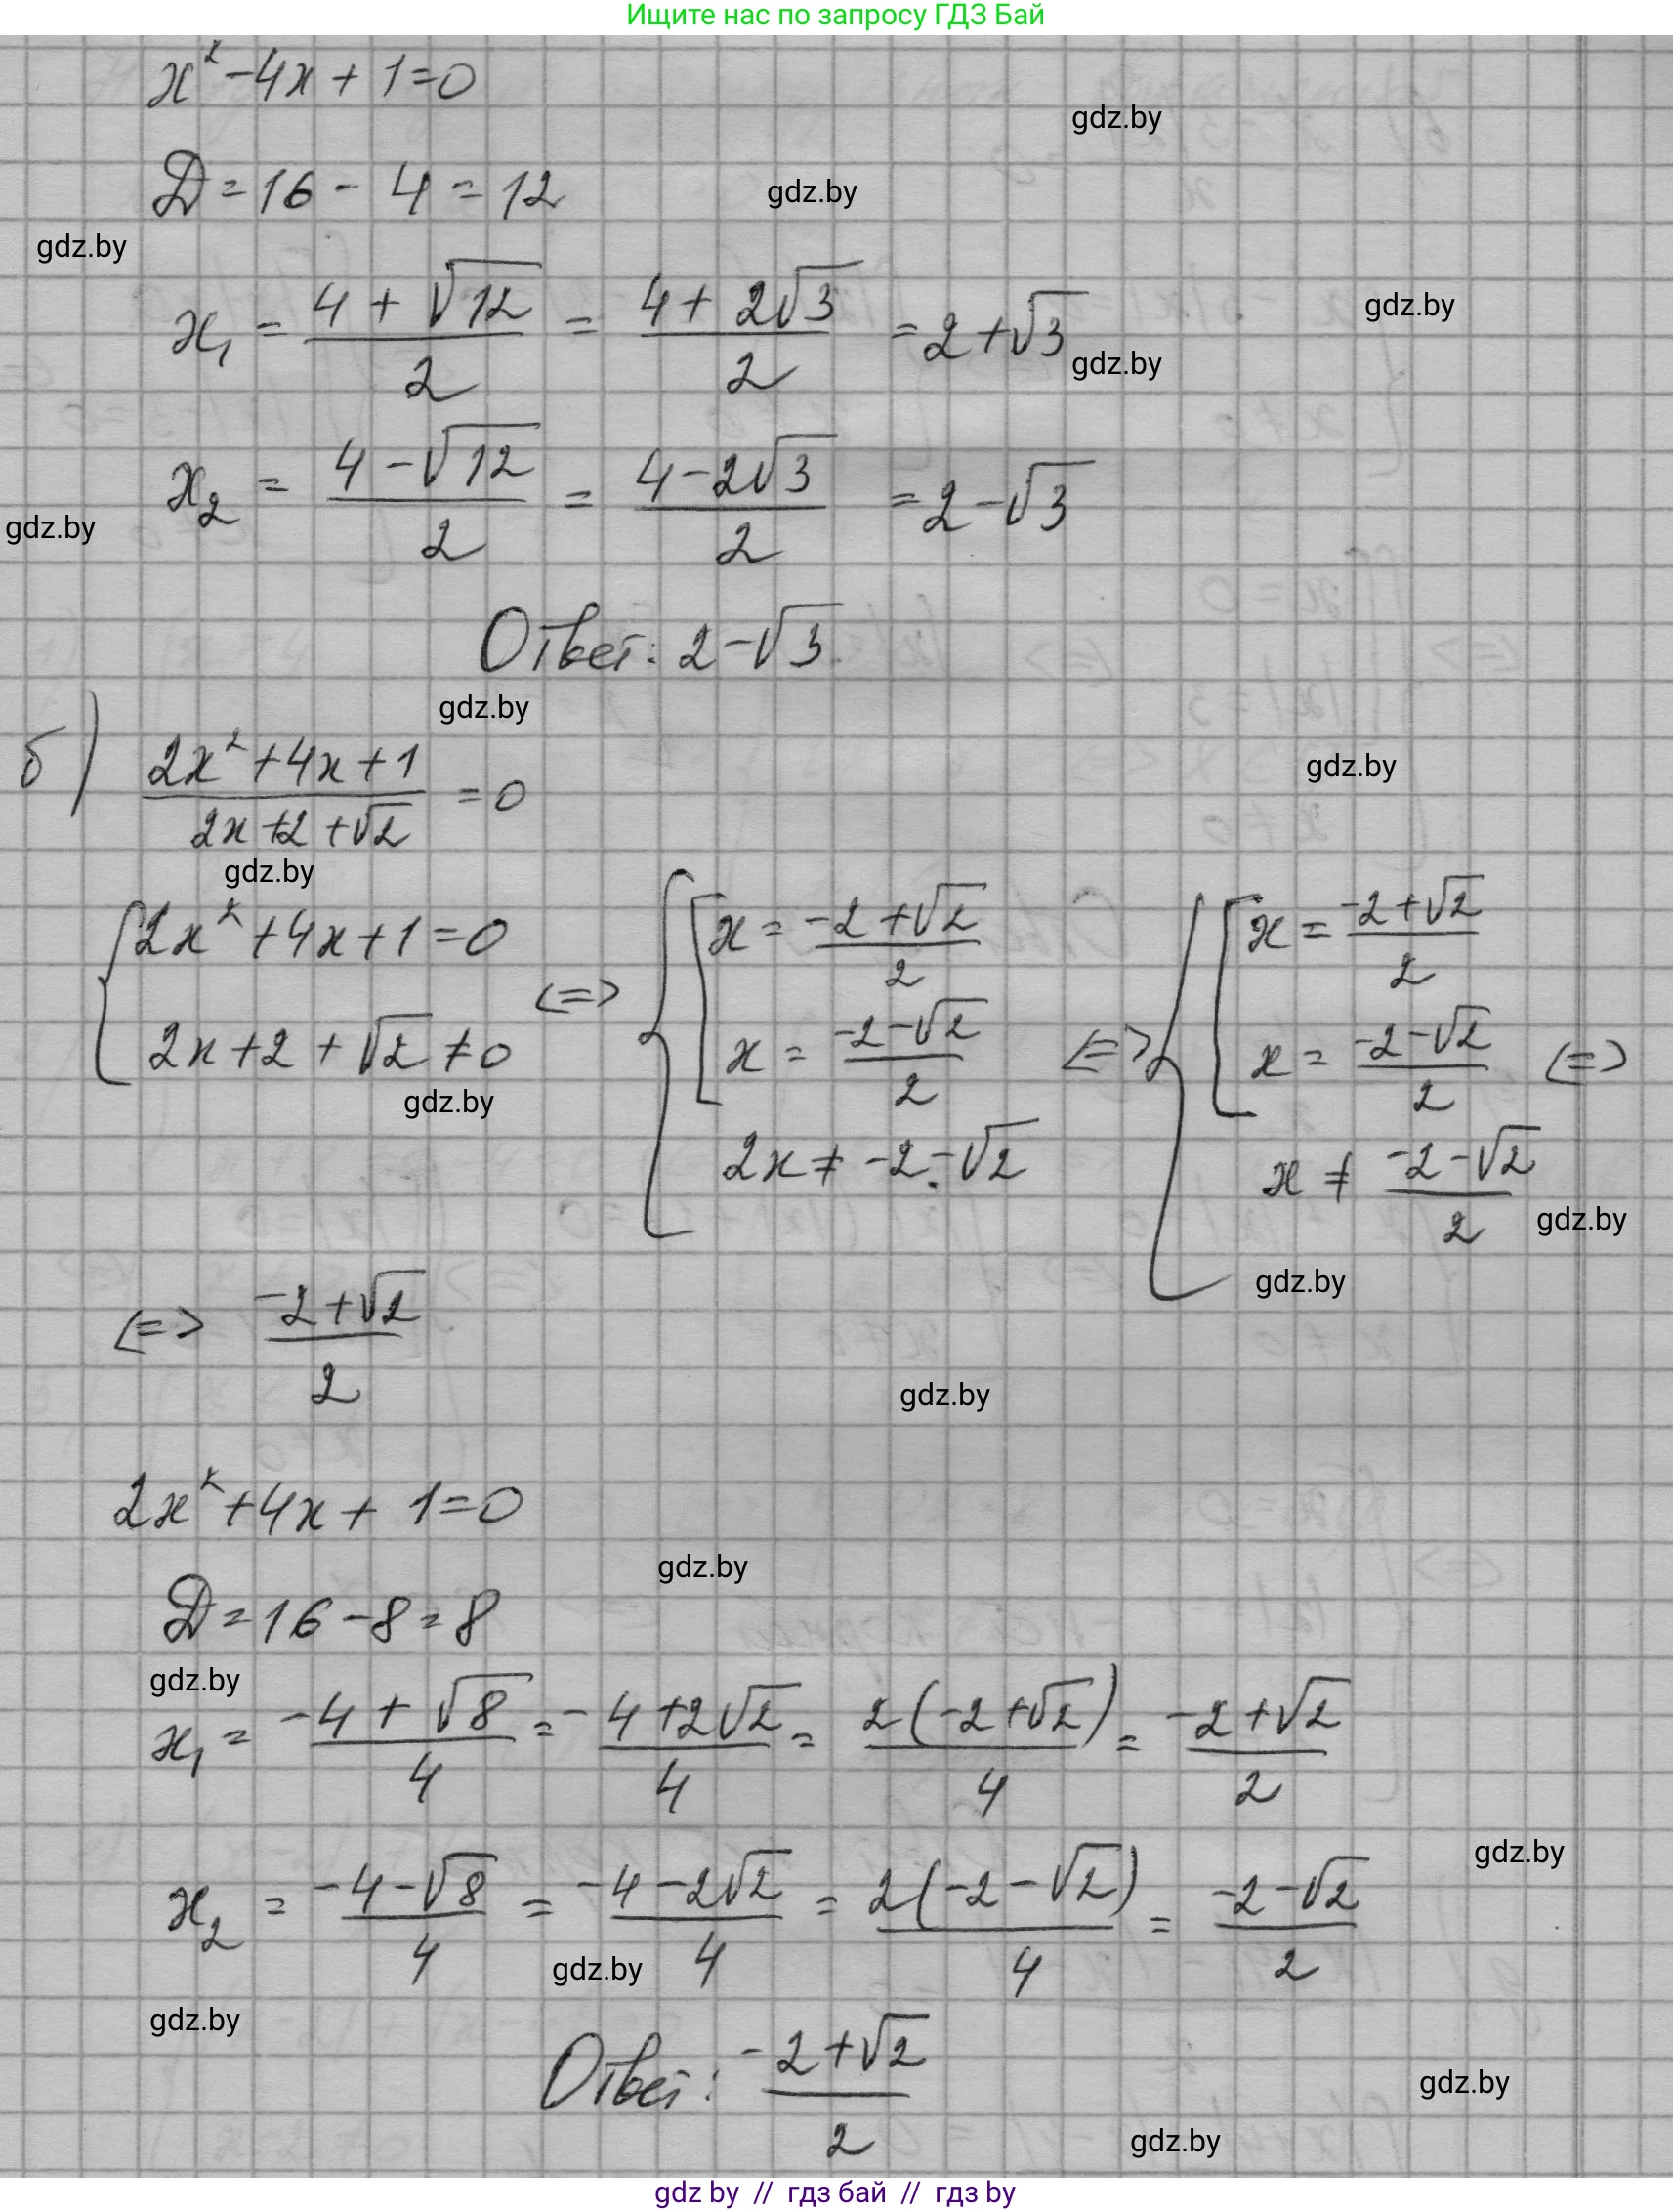 Ищите нас по запросу ГДЗ Бай
x² - 4x + 1 = 0
gdz.by
D = 16 - 4 = 12
gdz.by
gdz.by
x₁ = (4 + √12)/2 = (4 + 2√3)/2 = 2 + √3
gdz.by
gdz.by
x₂ = (4 - √12)/2 = (4 - 2√3)/2 = 2 - √3
gdz.by
Ответ: 2 - √3.
gdz.by
б) (2x² + 4x + 1)/(2x + 2 + √2) = 0
gdz.by
gdz.by
{ 2x² + 4x + 1 = 0
2x + 2 + √2 ≠ 0
<=> { [ x = (-2 + √2)/2
x = (-2 - √2)/2
2x ≠ -2 - √2
<=> { [ x = (-2 + √2)/2
x = (-2 - √2)/2
x ≠ (-2 - √2)/2
<=>
gdz.by
gdz.by
gdz.by
<=> (-2 + √2)/2
gdz.by
2x² + 4x + 1 = 0
gdz.by
D = 16 - 8 = 8
gdz.by
x₁ = (-4 + √8)/4 = (-4 + 2√2)/4 = 2(-2 + √2)/4 = (-2 + √2)/2
gdz.by
x₂ = (-4 - √8)/4 = (-4 - 2√2)/4 = 2(-2 - √2)/4 = (-2 - √2)/2
gdz.by
gdz.by
Ответ: (-2 + √2)/2
gdz.by
gdz.by
gdz by // гдз бай // гдз by